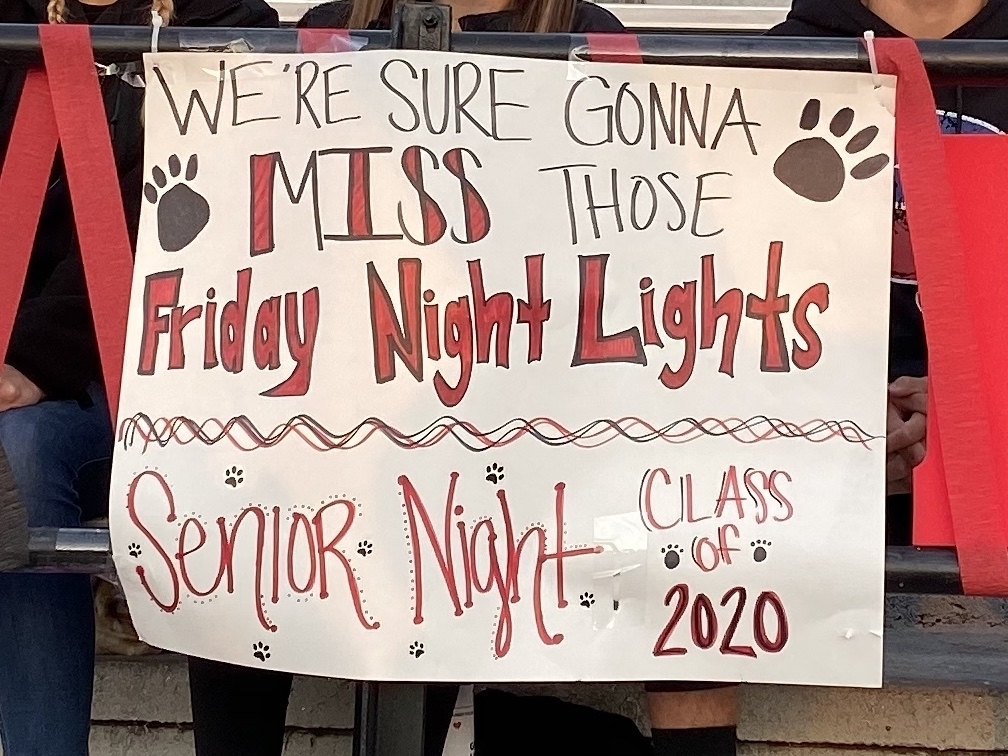 WE'RE SURE GONNA
MISS THOSE
Friday Night Lights
SENIOR Night
CLASS
of
2020